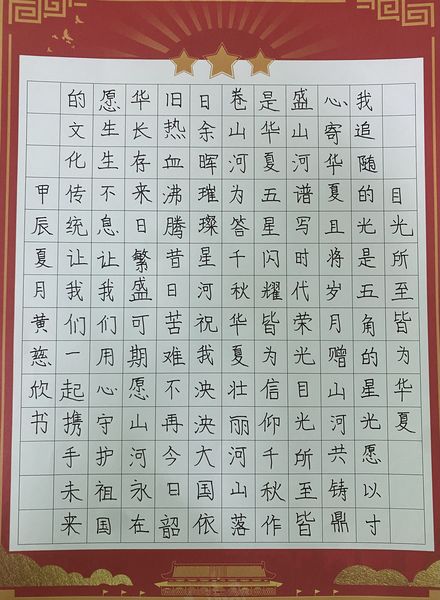 目光所至皆为华夏
我追随的光是五角的星光愿以寸
心寄华夏且将岁月赠山河共铸鼎
盛山河谱写时代荣光目光所至皆
是华夏五星闪耀皆为信仰千秋作
卷山河为答千秋华夏壮丽河山落
日余晖璀璨星河祝我泱泱大国依
旧热血沸腾昔日苦难不再今日韶
华长存来日繁盛可期愿山河永在
愿生生不息让我们用心守护祖国
的文化传统让我们一起携手未来
甲辰夏月黄慈欣书